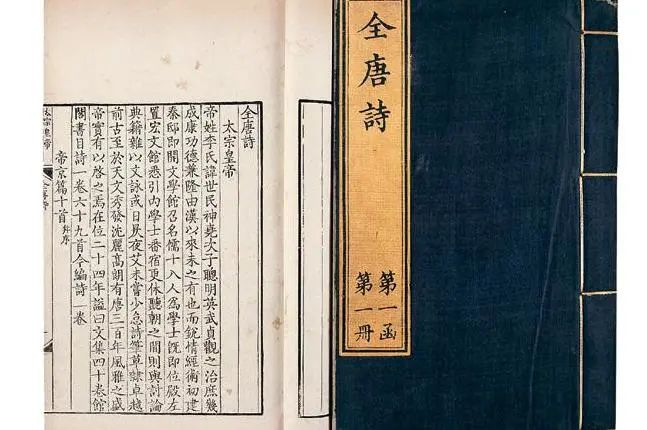 全唐詩
第一函
第一册
全唐詩
太宗皇帝
帝姓李氏諱世民神堯次子聰明英武貞觀之治庶幾
成康功德兼隆由漢以來未之有也而銳情經術初建
秦邸即開文學館召名儒十八人為學士既即位殿左
置弘文館悉引内學士番宿更休聽朝之間則與討論
典籍雜以文詠或日昃夜艾未嘗少怠詩筆草隸卓越
前古至於天文秀發沈麗高朗有唐三百年風雅之盛
帝實有以啓之焉在位二十四年諡曰文集四十卷館
閣書目詩一卷六十九首今編詩一卷
帝京篇十首并序